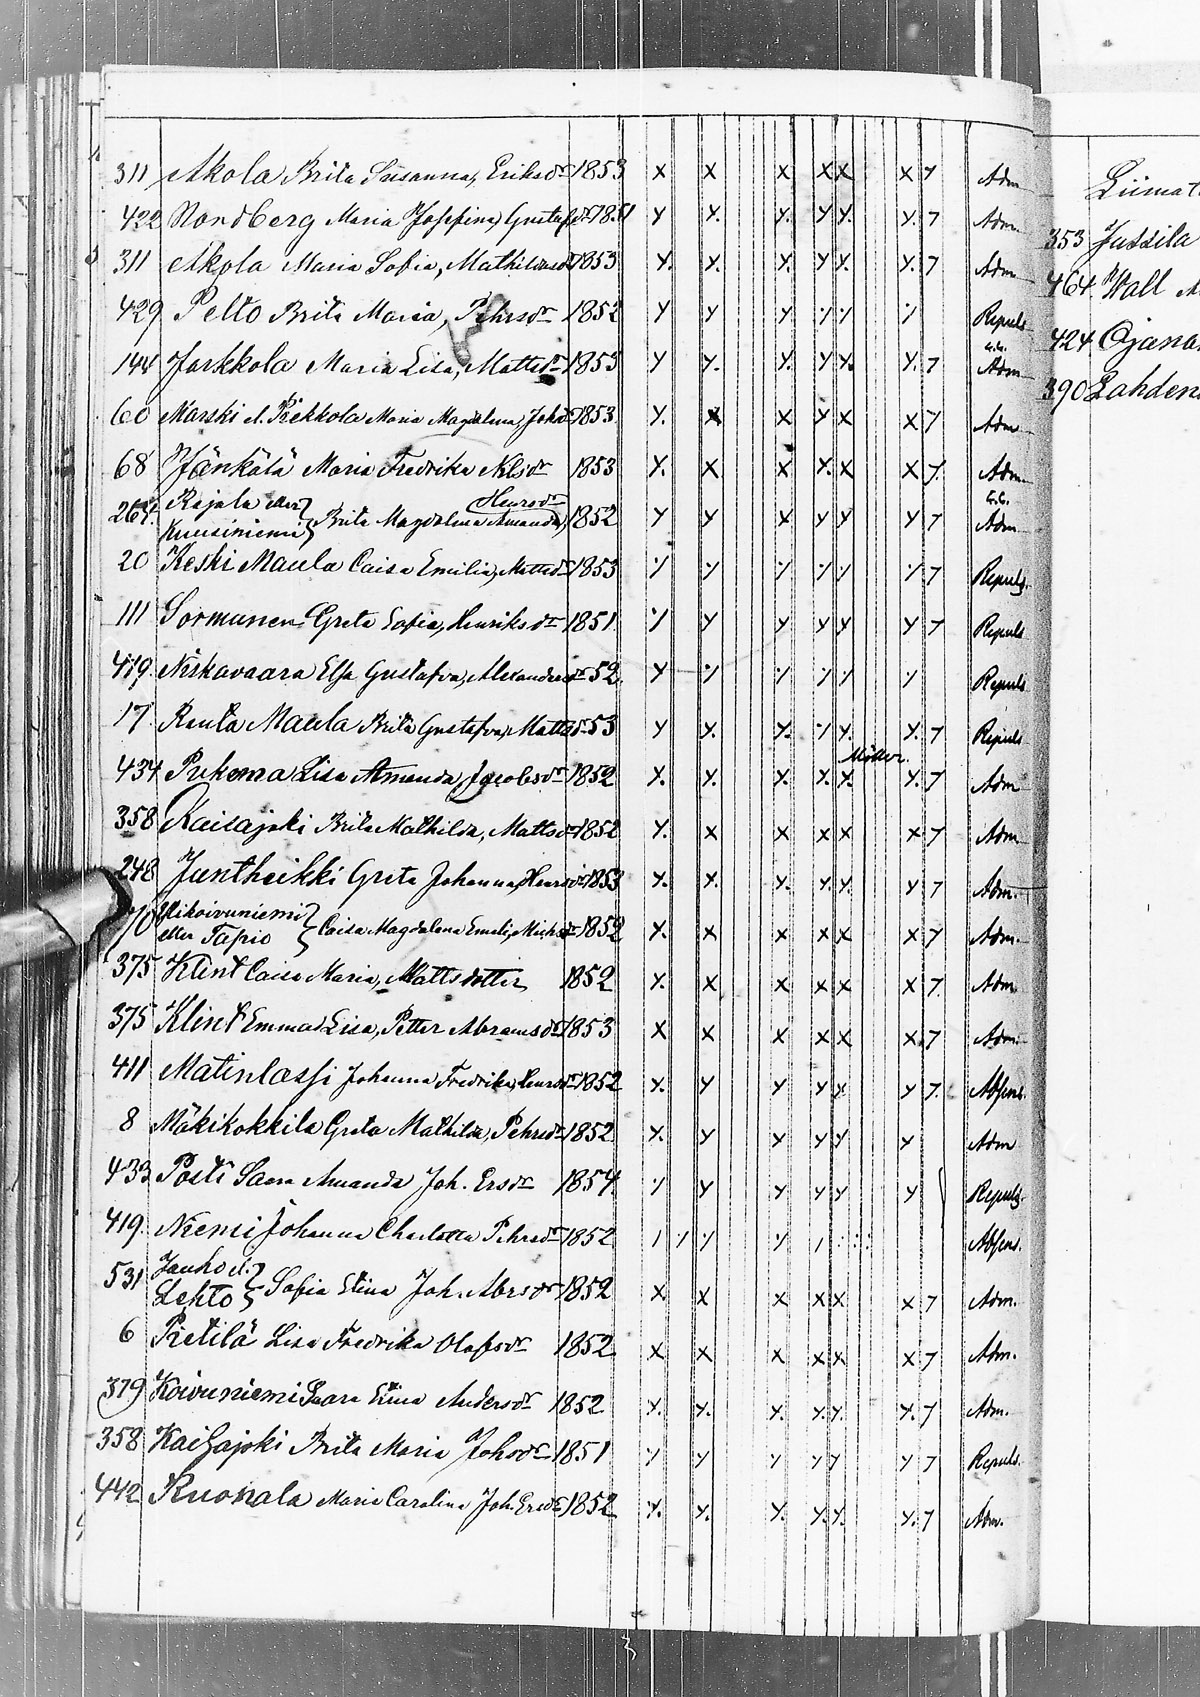 311 Akola Brita Susanna, Eriksdr 1853 x x x x x x 7 Adm
422 Nordberg Maria Josefina, Gustafsdr 1851 y y. y. y y. y. 7 Adm.
311 Akola Maria Sofia, Mathildasdr 1853 y. y. y. y y. y. 7 Adm
429 Pelto Brita Maria, Pehrsdr 1852 y y y ٪ ٪ ٪ Repuls
144 Jarkkola Maria Lisa, Mattsdr 1853 y y. y. y x. y. 7 G.G. Adm
60 Marski el. Pækkola Maria Magdalena, Johsdr 1853 y. x x y x x 7 Adm
68 Jänkälä Maria Fredrika Nilsdr 1853 y. x x y. x x 7. Adm.
Rajala eller Henrsdr G.G.
264. Kuusiniemi } Brita Magdalena Amanda, 1852 y y x y y y 7 Adm
20 Keski Maula Caisa Emilia, Mattsdr 1853 ٪ ٪ ٪ ٪ ٪ ٪ 7 Repuls.
111 Sormunen Greta Sofia, Henriksdr 1851 ٪ y y y y y 7 Repuls
419. Niskavaara Elsa Gustafva, Alexandersdr 52. y ٪ ٪ ٪ ٪ ٪ Repuls
17. Rauta Maula Brita Gustafva, Mattsdr 53 y y. y. ٪ y. y. 7 Repuls
434 Pukema Lisa Amanda, Jacobsdr 1852 y. y. x. x. x. y. 7 Adm
358 Kaisajoki Brita Mathilda, Mattsdr 1852 y. x x x x x 7 Adm
248 Juntheikki Greta Johanna, Henrsdr 1853 y. y. y. y y. y 7 Adm.
Alikoivuniemi
70 eller Tapio } Caisa Magdalena Emeli, Michsdr 1852 y. x x x x x 7 Adm.
375 Klint Caisa Maria, Mattsdotter 1852 y. x x x x x 7. Adm
375 Klint Emma Lisa, Petter Abramsdr 1853 x x x x x x. 7 Adm.
411 Matinlassi Johanna Fredrika, Henrsdr 1852 y. y y y y y 7. Absens.
8 Mäkikokkila Greta Mathilda, Pehrsdr 1852 y. y y y y y Adm
433 Posti Sara Amanda Joh. Ersdr 1854. ٪ y y y y y Repuls.
419. Niemi Johanna Charlotta Pehrsdr 1852 / ٪ ٪ y / Absens.
Jauho el.
531 Lehto } Sofia Stina Joh. Abrsdr 1852 x. x x x x x 7 Adm.
6 Pietilä Lisa Fredrika Olofsdr 1852. x x x x x x 7 Adm.
379 Koivuniemi Saara Stina Andersdr 1852 y. y. y. y. y. y. 7 Adm.
358 Kaisajoki Brita Maria Johsdr 1851 ٪ y y y y y 7 Repuls.
442 Ruokala Maria Carolina Joh. Ersdr 1852 y. y. y. y. y. y. 7 Adm.
353 Jussila
464. Wall
424 Ojana
390 Lahden